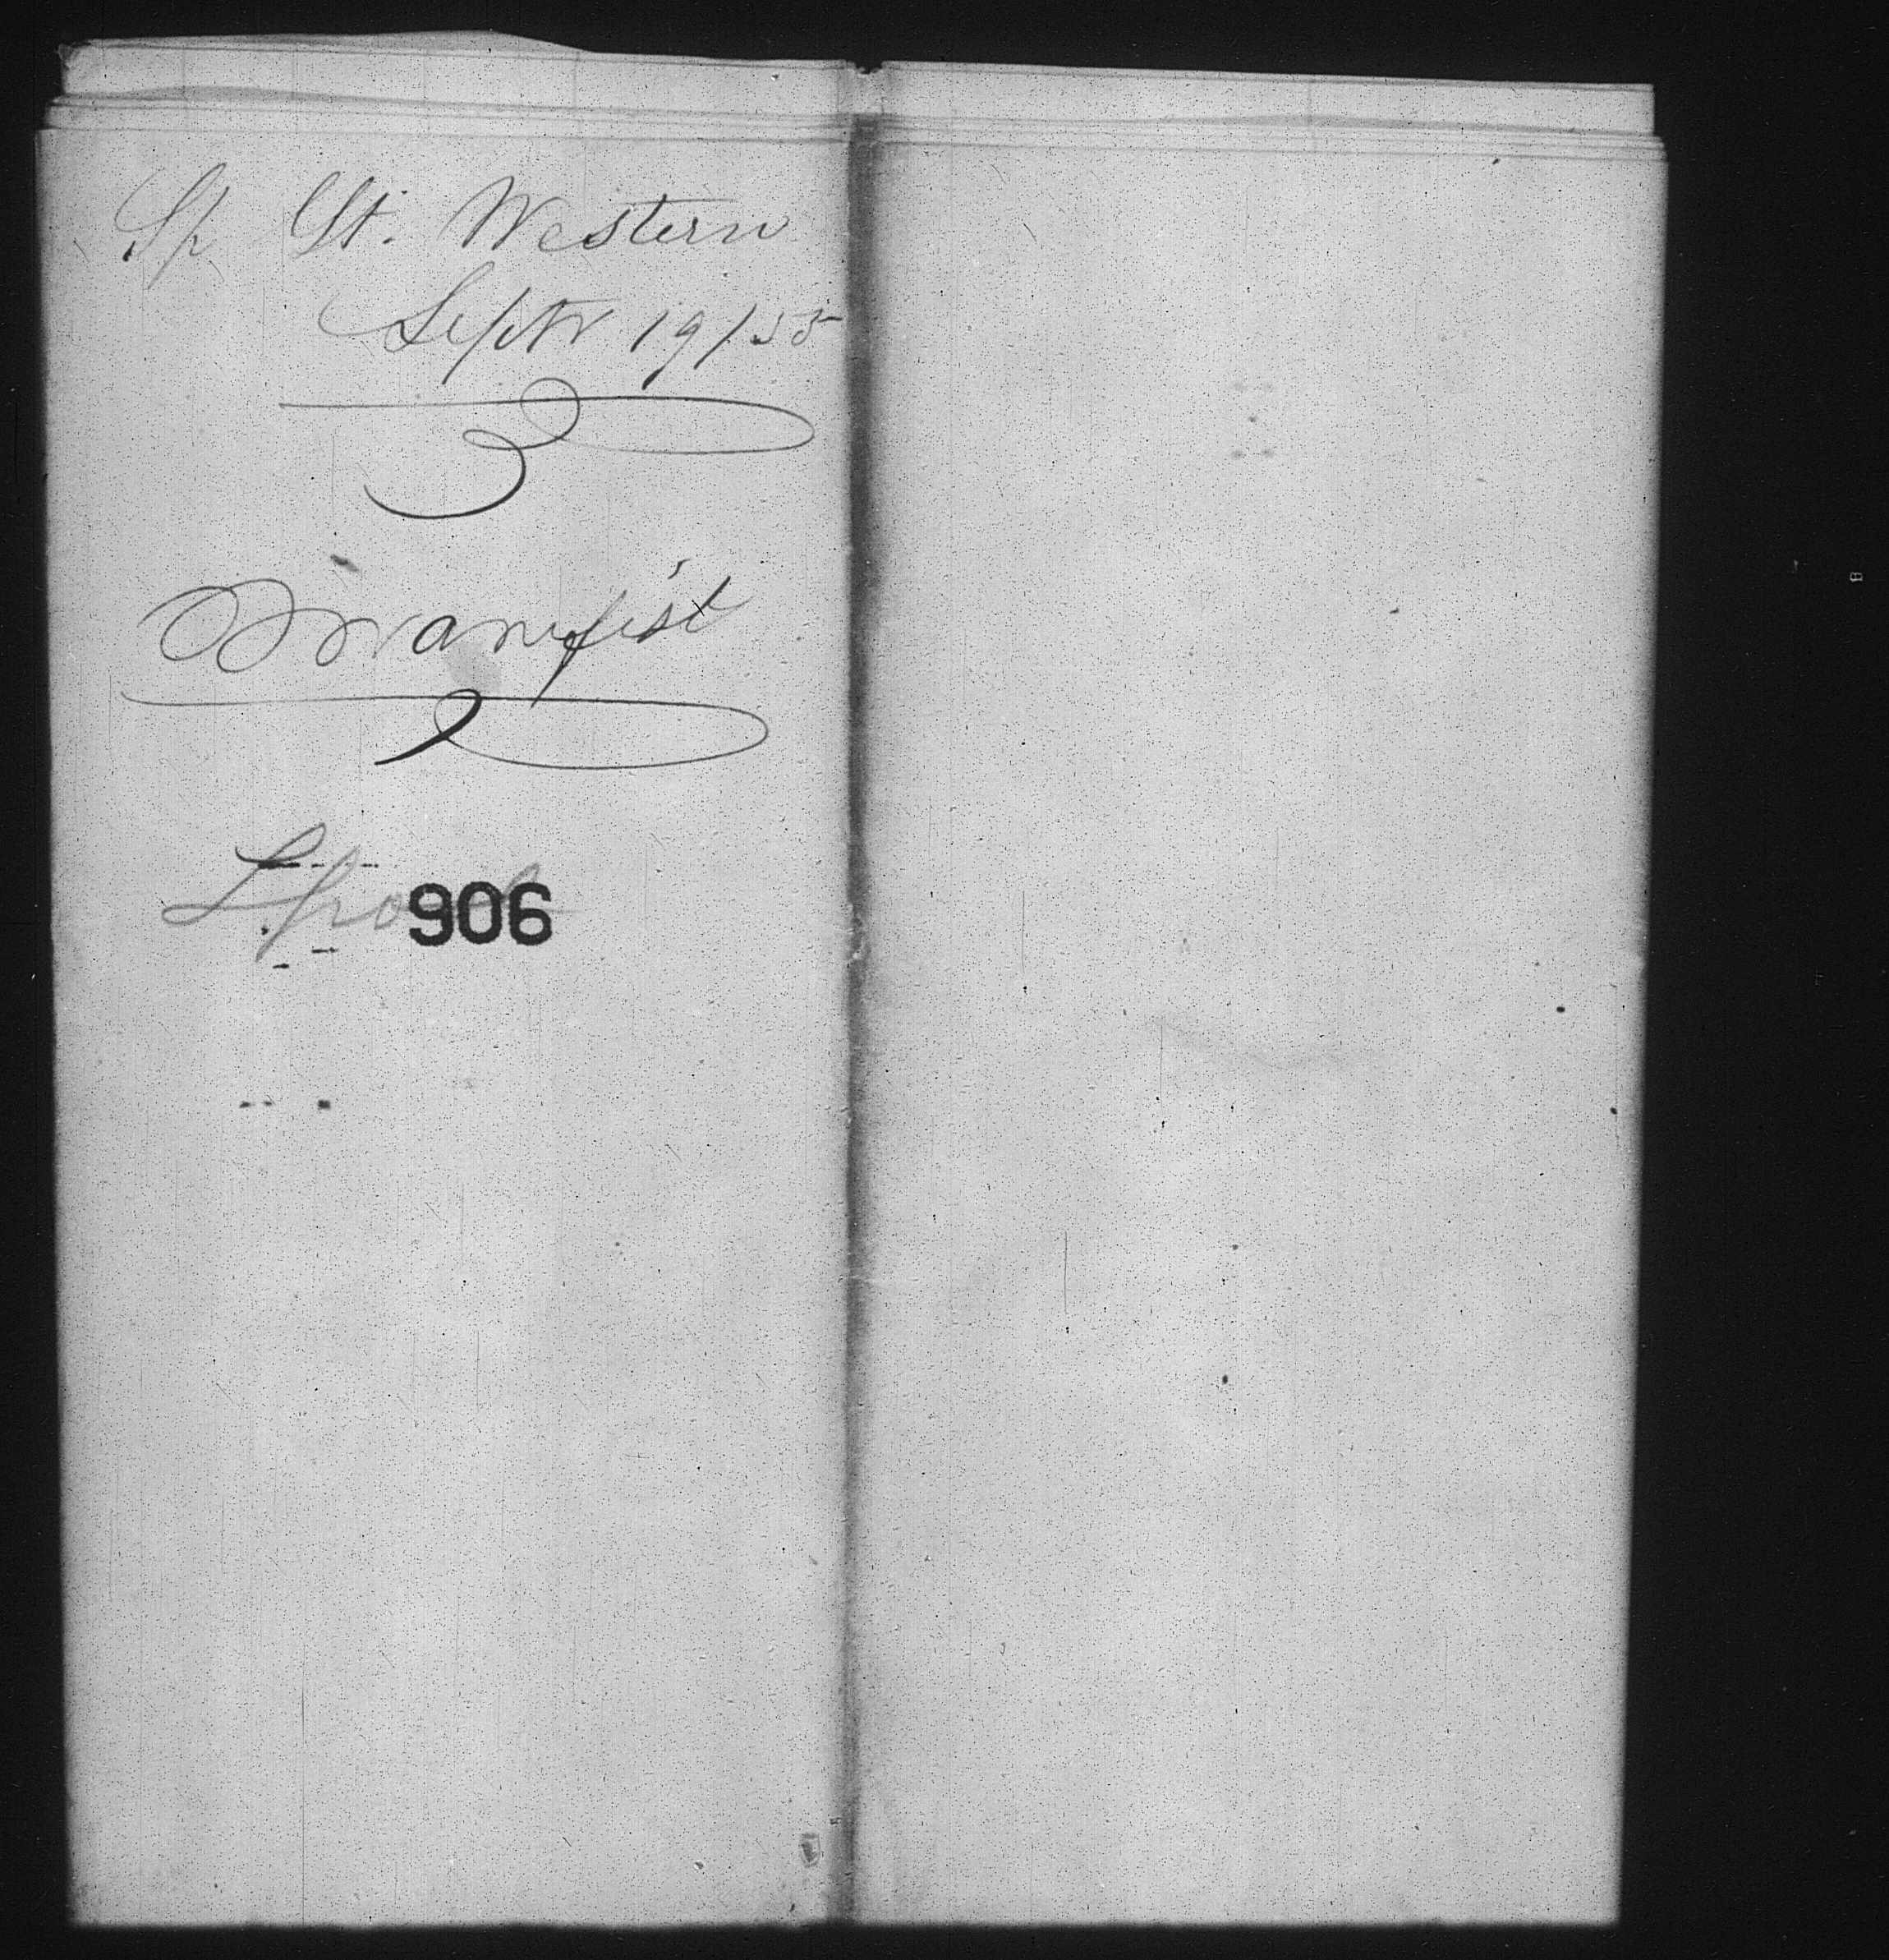 Sp Gt. Western
Septr 19/55
Manifest
906